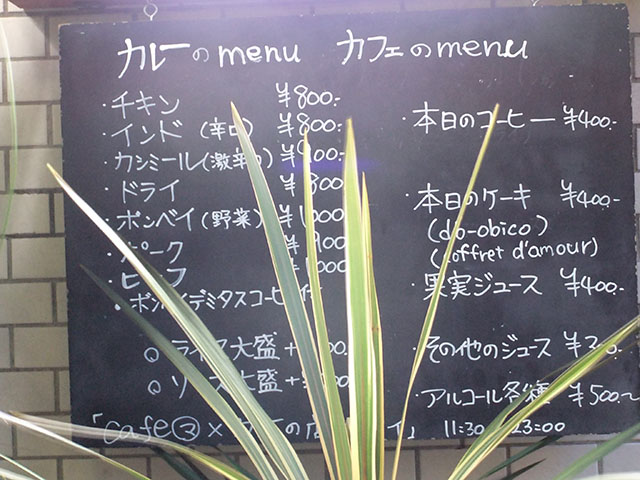 カレーのmenu
・チキン ¥800.-
・インド (辛口) ¥800.-
・カシミール(激辛) ¥900.-
・ドライ ¥800.-
・ボンベイ(野菜) ¥1000
・ポーク 900
・ビーフ
・ボンベイデミタスコーヒー付
○ライス大盛+
○ソース大盛+
カフェのmenu
・本日のコーヒー ¥400.-
・本日のケーキ ¥400.-
(do-obico)
(coffret d'amour)
・果実ジュース ¥400.-
・その他のジュース
・アルコール各種 ¥500.〜
「cafe③× の イ」 11:30 23:00